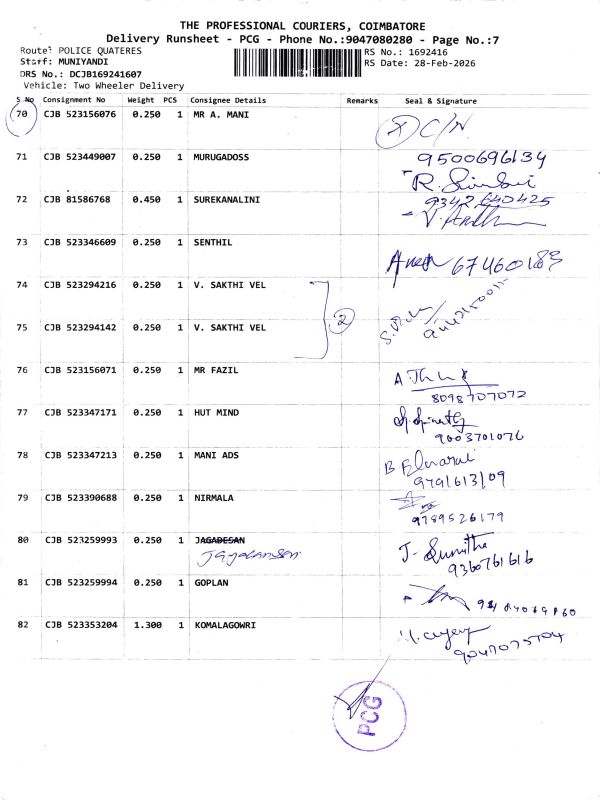 THE PROFESSIONAL COURIERS, COIMBATORE
Delivery Runsheet - PCG - Phone No.:9047080280 - Page No.:7
Route: POLICE QUATERES
RS No.: 1692416
Staff: MUNIYANDI
RS Date: 28-Feb-2026
DRS No.: DCJB169241607
Vehicle: Two Wheeler Delivery
S No Consignment No Weight PCS Consignee Details Remarks Seal & Signature
70 CJB 523156076 0.250 1 MR A. MANI
71 CJB 523449007 0.250 1 MURUGADOSS 9500696134
72 CJB 81586768 0.450 1 SUREKANALINI 9342640425
73 CJB 523346609 0.250 1 SENTHIL
74 CJB 523294216 0.250 1 V. SAKTHI VEL
2
75 CJB 523294142 0.250 1 V. SAKTHI VEL
76 CJB 523156071 0.250 1 MR FAZIL
8098707072
77 CJB 523347171 0.250 1 HUT MIND
9003701076
78 CJB 523347213 0.250 1 MANI ADS
9791613109
79 CJB 523390688 0.250 1 NIRMALA
9789526179
80 CJB 523259993 0.250 1 JAGADESAN J. Sumitha
9360761616
81 CJB 523259994 0.250 1 GOPLAN
82 CJB 523353204 1.300 1 KOMALAGOWRI
PCG